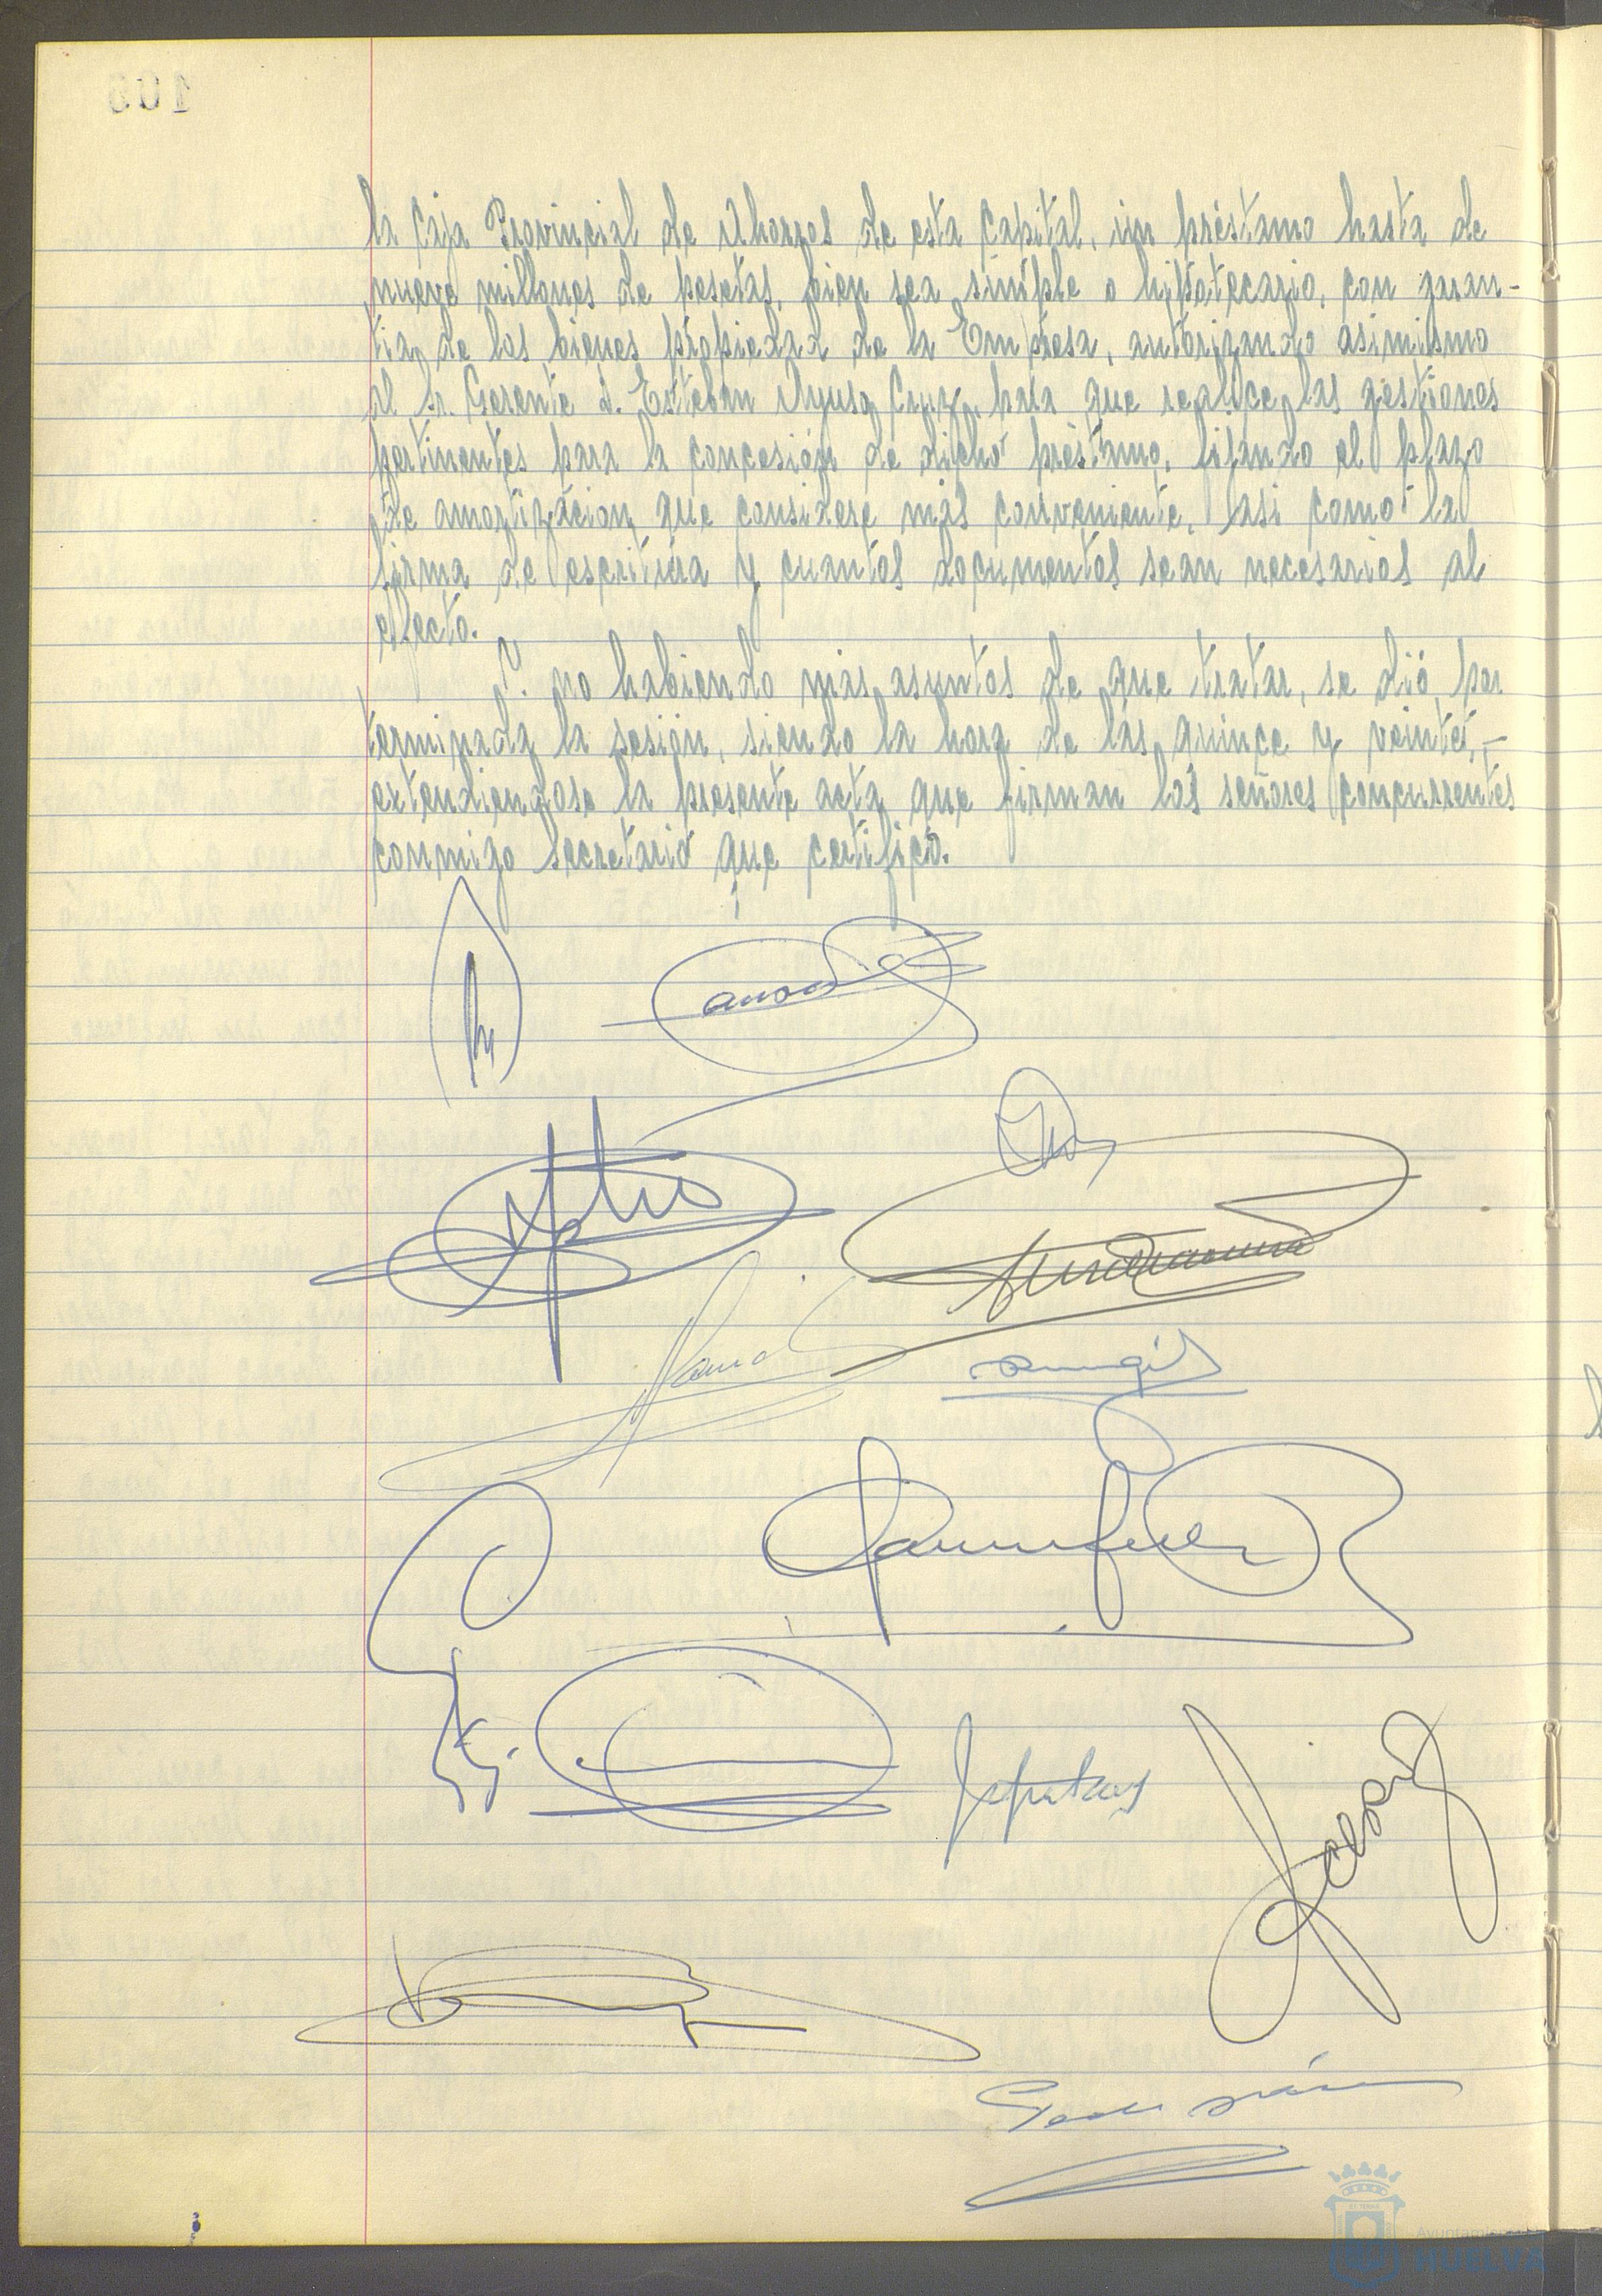 la Caja Provincial de Ahorros de esta Capital, un préstamo hasta de
nueve millones de pesetas, bien sea simple o hipotecario, con garan-
tia de los bienes propiedad de la Empresa, autorizando asimismo
al Sr. Gerente D. Esteban Ayuso Cruz, para que realice las gestiones
pertinentes para la concesión de dicho préstamo, fijando el plazo
de amortización que considere más conveniente, asi como la
firma de escritura y cuantos documentos sean necesarios al
efecto.
Y no habiendo más asuntos de que tratar, se dió por
terminada la sesión, siendo la hora de las quince y veinte,-
extendiendose la presente acta que firman los señores concurrentes
conmigo Secretario que certifico.
Ayuntamiento
HUELVA